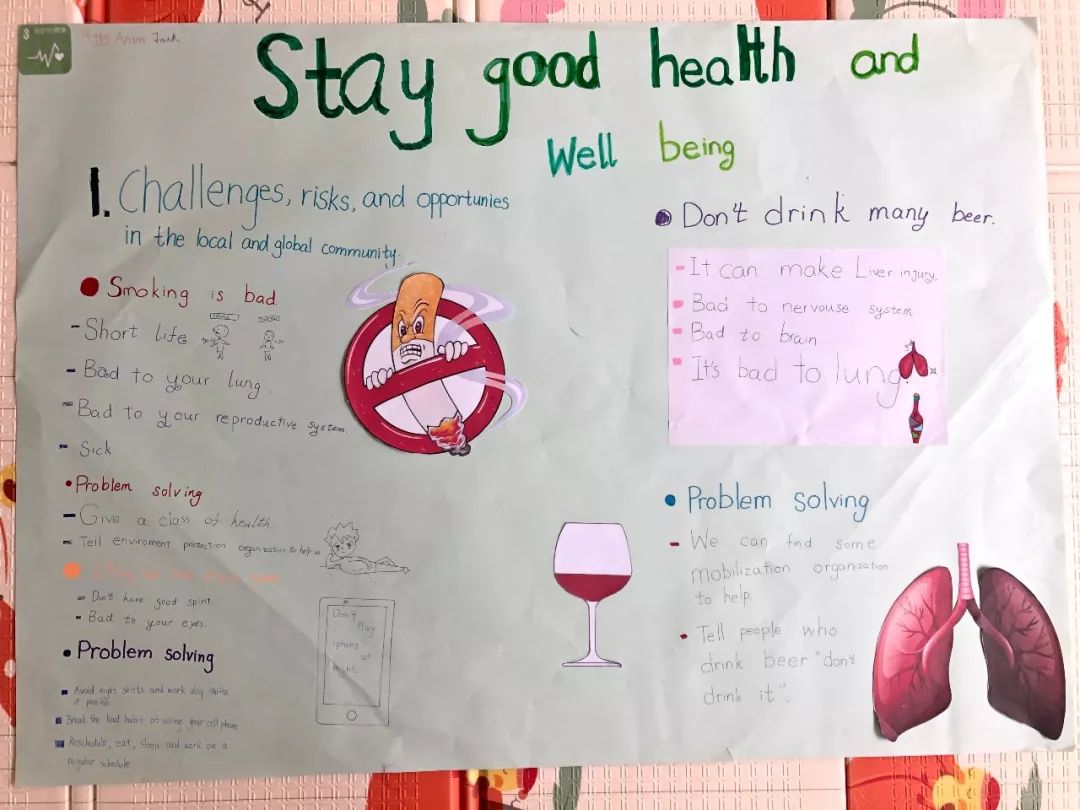 3
Anna Jack
Stay good health and
Well being
1. Challenges, risks, and opportunies
in the local and global community.
Smoking is bad.
- Short life
- Bad to your lung.
- Bad to your reproductive system.
- Sick
• Problem solving
- Give a class of health
- Tell enviroment protection organization to help us
- Don't have good spirit.
- Bad to your eyes.
• Problem solving
Avoid night shifts and work day shifts
if possible
Break the bad habit of using your cell phone
Reschedule, eat, sleep and work on a
regular schedule.
Don't
Play
iphone
at
night
• Don't drink many beer.
- It can make Liver injury.
- Bad to nervouse system
- Bad to brain
- It's bad to lung.
• Problem solving
- We can find some
mobilization organization
to help.
• Tell people who
drink beer "don't
drink it".